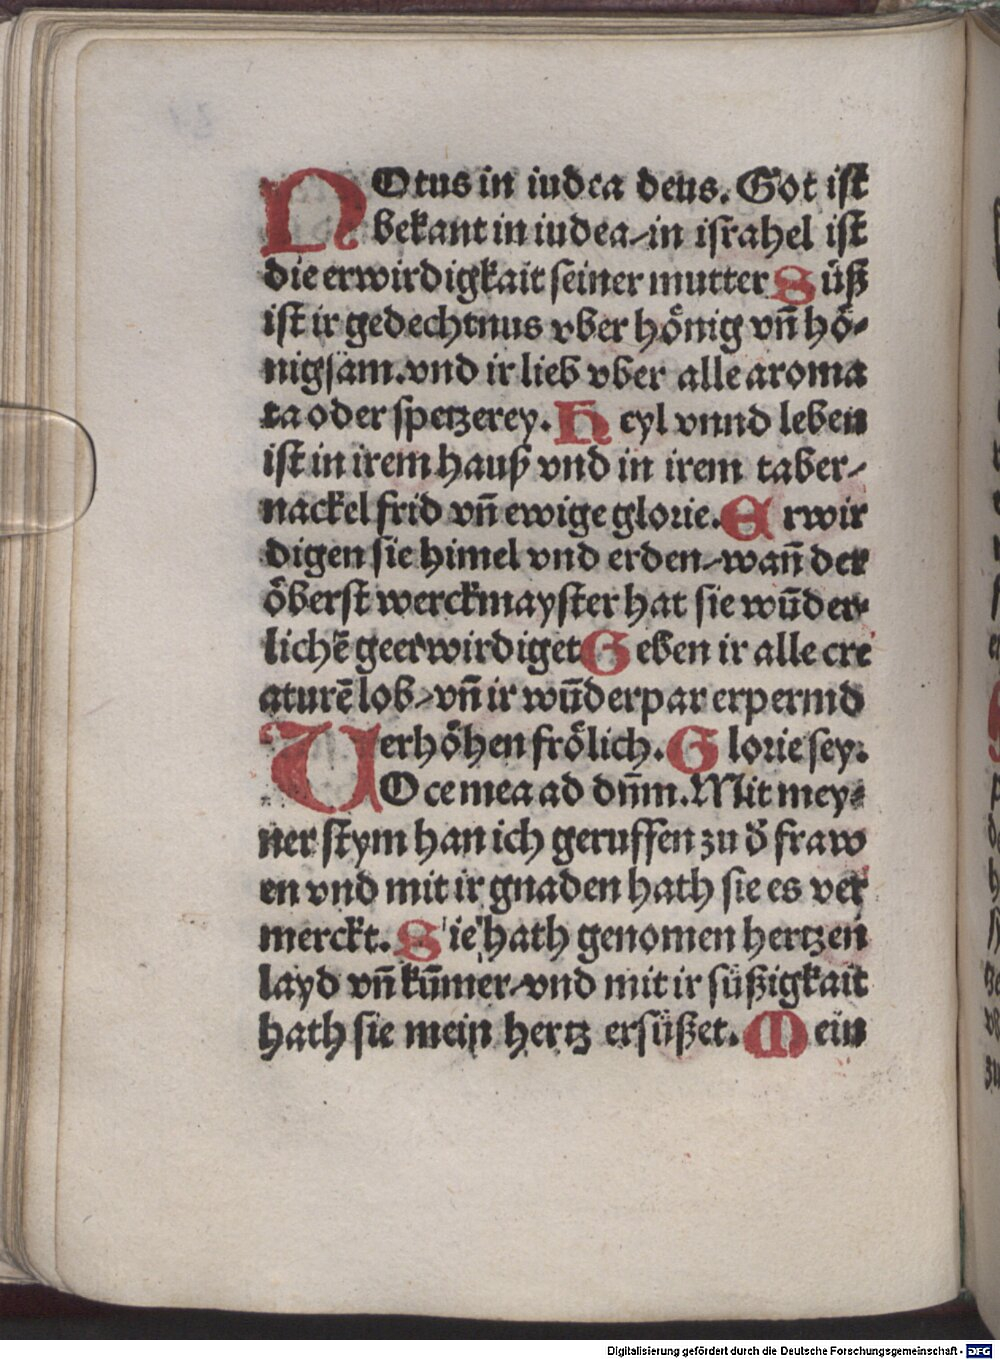 NOtus in iudea deus. Got ist
bekant in iudea/ in israhel ist
die erwirdigkait seiner mutter Süß
ist ir gedechtnus vber hönig vn̄ hö-
nigsam. vnd ir lieb vber alle aroma
ta oder spetzerey. Heyl vnnd leben
ist in irem hauß vnd in irem taber/
nackel frid vn̄ ewige glorie. Erwir
digen sie himel vnd erden/ wan̄ der
öberst werckmayster hat sie wūder-
lichē geerwirdiget Geben ir alle cre
aturē lob/ vn̄ ir wūderpar erpermd
verhöhen frölich. Glorie sey.
VOce mea ad dn̄m. Mit mey-
ner stym han ich geruffen zu d̄ fraw
en vnd mit ir gnaden hath sie es ver
merckt. Sie hath genomen hertzen
layd vn̄ kūmer/ vnd mit ir süßigkait
hath sie mein hertz ersüßet. Mein
Digitalisierung gefördert durch die Deutsche Forschungsgemeinschaft - DFG